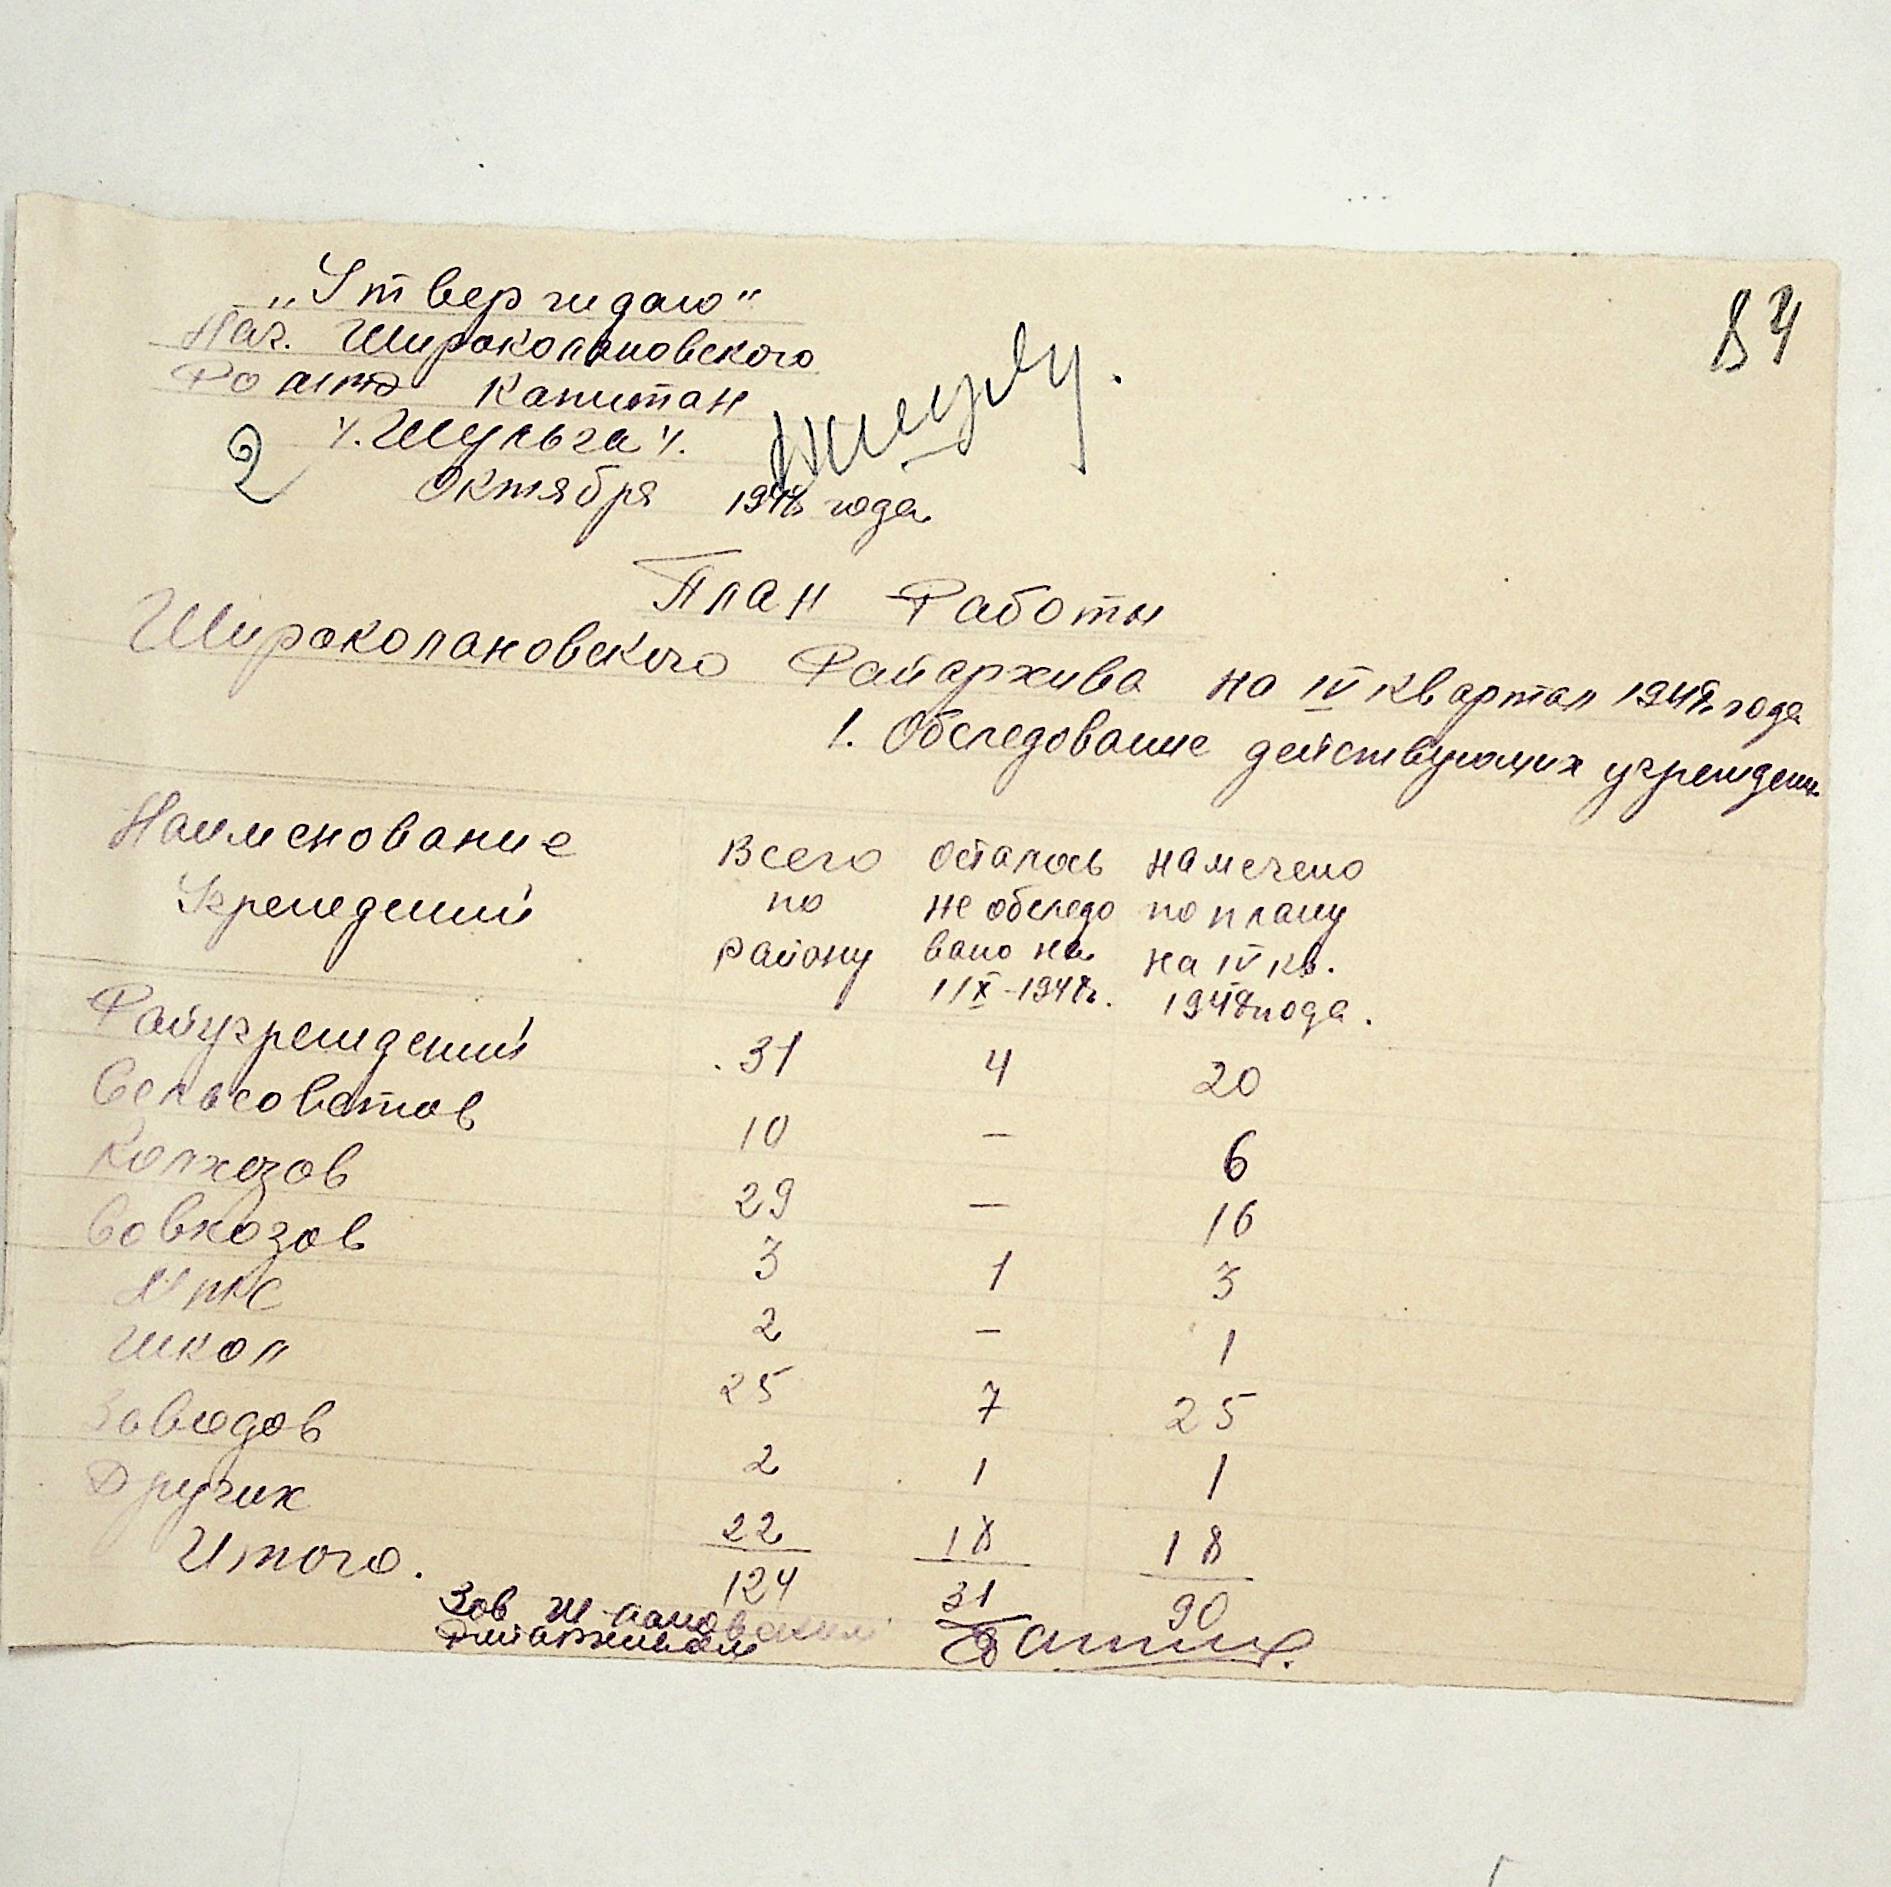 84
„Утверждаю"
Нач. Широколановского
РО МГБ Капитан
/.Шульга/.
2 Октября 1948 года
План Работы
Широколановского Райархива на IV квартал 1948 года
1. Обследование действующих учрежден.
Наименование Учреждений
Всего по району
осталось не обследовано на 1/X-1948г.
намечено по плану на IV кв. 1948 года.
Райучреждений 31 4 20
Сельсоветов 10 – 6
Колхозов 29 – 16
Совхозов 3 1 3
МТС 2 – 1
Школ 25 7 25
Заводов 2 1 1
Других 22 18 18
Итого. 124 31 90
Зав Ш-Лановским
Райархивом